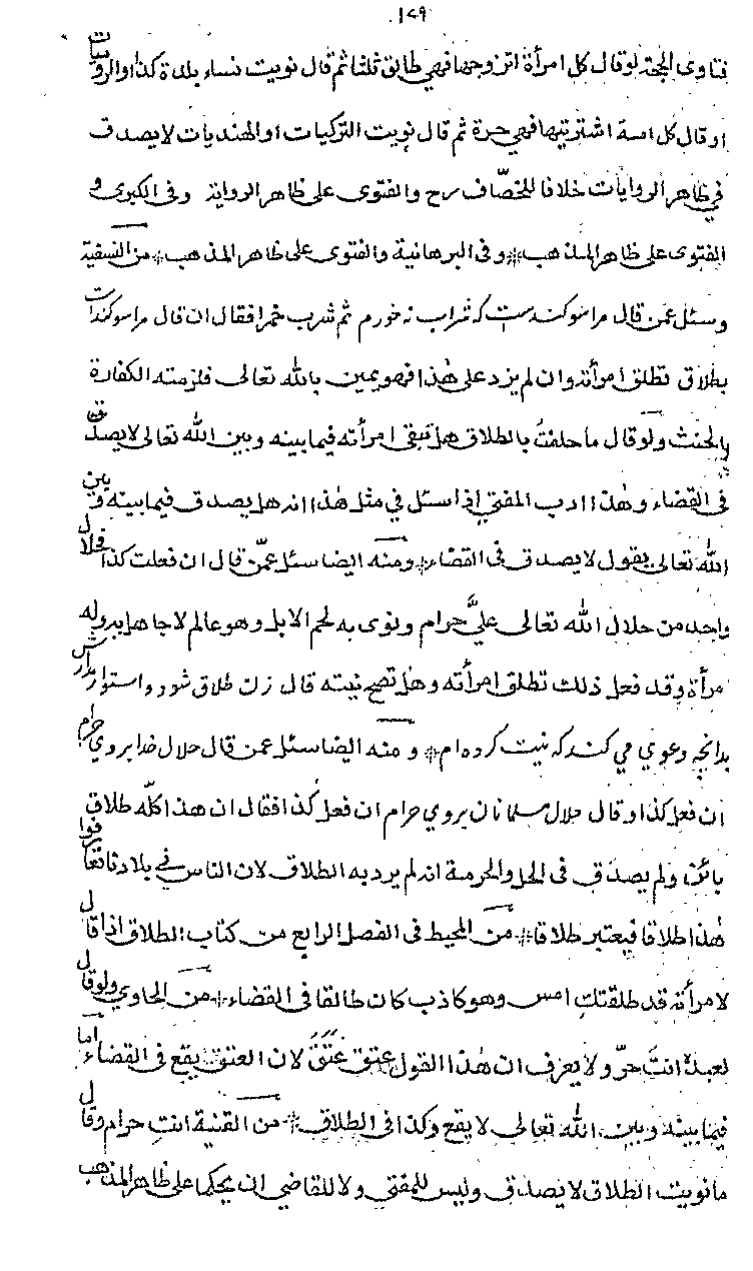 ١٧٩
فتاوى الحجة لوقال كل امرأة اتزوجها فهي طالق ثلثا ثم قال نويت نساء بلدة كذا والروميات
اوقال كل امة اشتريتها فهي حرة ثم قال نويت التركيات او الهنديات لا يصدق
في ظاهر الروايات خلافا للخصّاف رح والفتوى على ظاهر الرواية وفى الكبرى و
الفتوى على ظاهر المذهب * وفى البرهانية والفتوى على ظاهر المذهب * من النسفية
وسئل عمن قال مراسوكندست كه شراب نه خورم ثم شرب خمرا فقال ان قال مراسوكنداست
بطلاق تطلق امرأته وان لم يزد على هٰذا فهو يمين بالله تعالى فلزمته الكفارة
بالحنث ولوقال ما حلفتُ بالطلاق هل تبقى امرأته فيما بينه وبين الله تعالى لا يصدق
فى القضاء وهٰذا ادب المفتي اذا سئل في مثل هٰذا انه هل يصدق فيما بينه وبين
الله تعالى يقول لا يصدق فى القضاء * ومنه ايضا سئل عمّن قال ان فعلت كذا فحلال
واحد من حلال الله تعالى عليَّ حرام ونوى به لحم الابل وهو عالم لا جاهل وله
امرأة وقد فعل ذلك تطلق امرأته وهل تصح نيته قال زن طلاق شود واستوار ندارش
بدانچه دعوي مي كند كه نيت كرده ام * ومنه ايضا سئل عمن قال حلال خدا بروي حرام
ان فعل كذا وقال حلال مسلمانان بروي حرام ان فعل كذا فقال ان هذا كلّه طلاق
بائن ولم يصدق فى الحل والحرمة انه لم يرد به الطلاق لان الناس في بلادنا تعارفوا
هٰذا طلاقا فيعتبر طلاقا * من المحيط فى الفصل الرابع من كتاب الطلاق اذا قال
لامرأته قد طلقتك امس وهو كاذب كان طالقا فى القضاء * من الحاوي ولوقال
لعبده انت حرّ ولا يعرف ان هٰذا القول عتق عَتَقَ لان العتق يقع فى القضاء اما
فيما بينه وبين الله تعالى لا يقع وكذا فى الطلاق * من القنية انتِ حرام وقال
ما نويت الطلاق لا يصدق وليس للمفتي ولا للقاضي ان يحكما على ظاهر المذهب